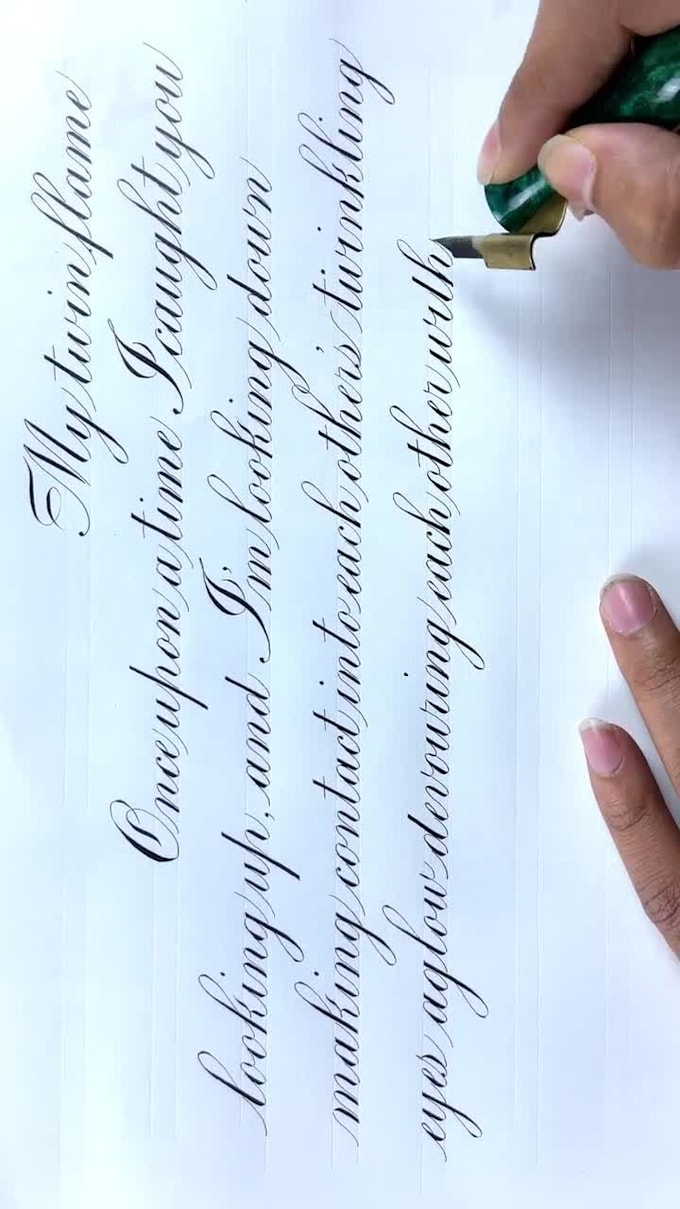 My twin flame
Once upon a time I caught you
looking up, and I'm looking down
making contact into each others' twinkling
eyes aglow devouring each other with